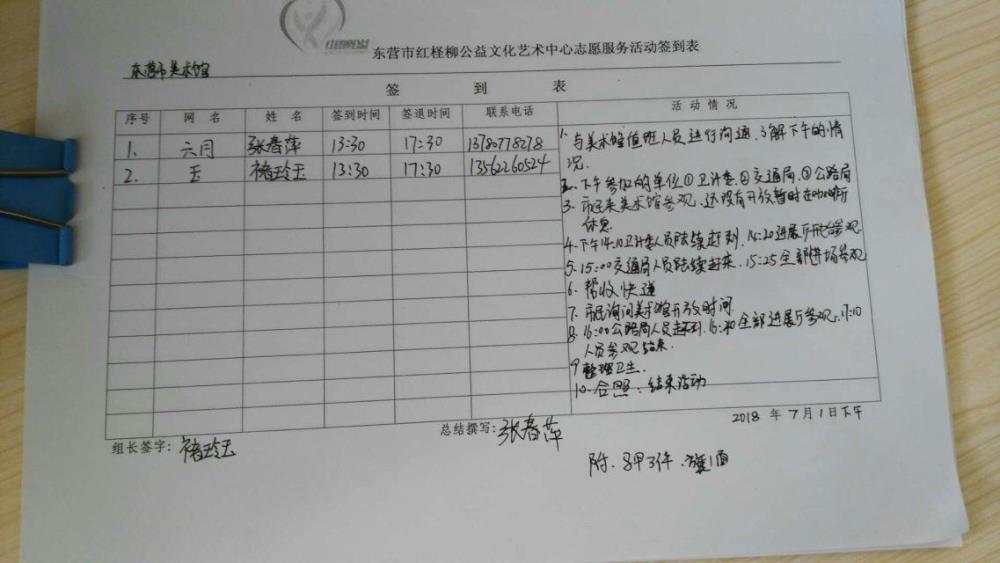 东营市红柽柳公益文化艺术中心志愿服务活动签到表
东营市美术馆
签 到 表
序号 网 名 姓 名 签到时间 签退时间 联系电话 活 动 情 况
1. 六月 张春萍 13:30 17:30 13780778278
2. 玉 褚玲玉 13:30 17:30 13562260524
1. 与美术馆值班人员进行沟通,了解下午的情
况.
2. 下午参加的单位①卫计委.②交通局.③公路局
3. 市民来美术馆参观.还没有开放暂时在咖啡厅
休息
4.下午14:10卫计委人员陆续赶到.14:20进展厅开始参观
5.15:00交通局人员陆续赶来.15:25全部进场参观
6. 帮收快递
7. 市民询问美术馆开放时间
8. 16:00公路局人员赶到.16:20全部进展厅参观.17:10
人员参观结束.
9 整理卫生.
10.合照.结束活动
组长签字:褚玲玉
总结撰写:张春萍
2018 年 7 月 1 日下午
附.马甲3件.旗1面